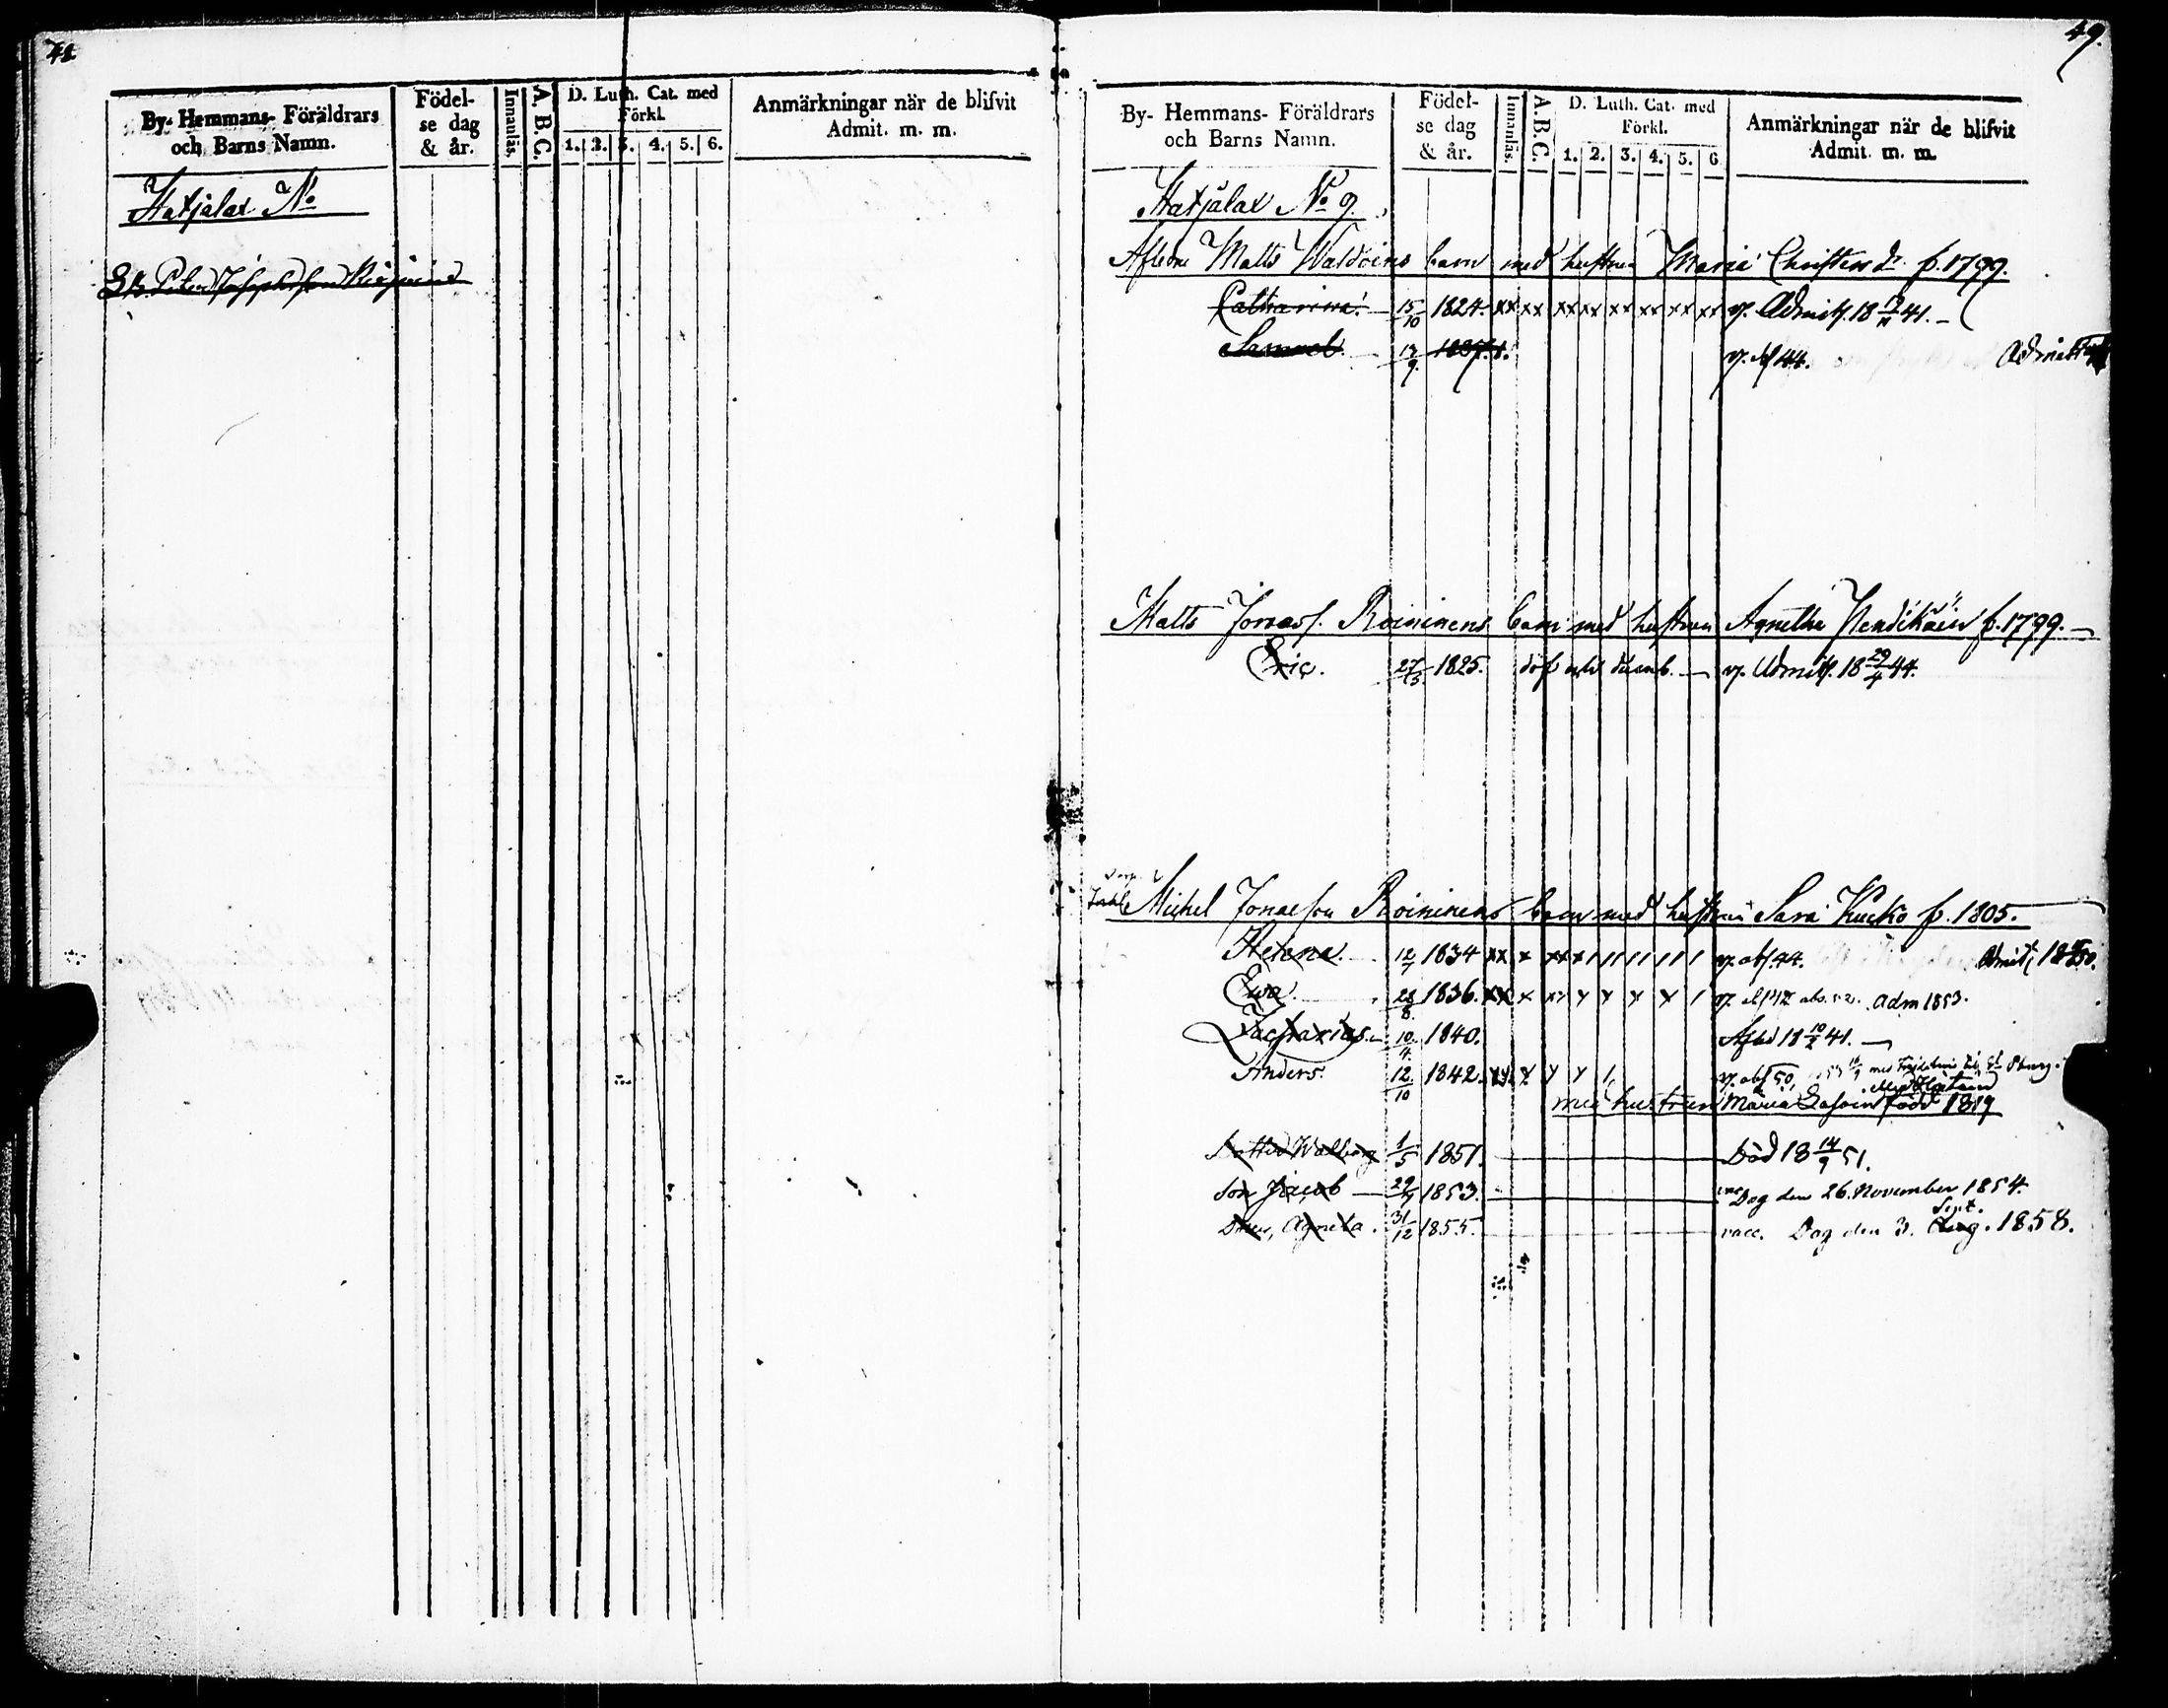 By- Hemmans- Föräldrars
och Barns Namn.
Födel-
se dag
& år.
Innanläs.
A.B.C.
D. Luth. Cat. med
Förkl.
1. 2. 3. 4. 5. 6.
Anmärkningar när de blifvit
Admit. m. m.
Hatjalax No
49.
By- Hemmans- Föräldrars
och Barns Namn.
Födel-
se dag
& år.
Innanläs.
A.B.C.
D. Luth. Cat. med
Förkl.
1. 2. 3. 4. 5. 6
Anmärkningar när de blifvit
Admit. m. m.
Hatjalax No 9.
Afledne Matts Waldoins barn med hustrun Maria Christers dr f. 1799.
Catharina 15/10 1824. xx xx xx xx xx xx xx xx v. Admitt. 18 41.
Samuel 17/9 v.
Matts Jonass. Roininens barn med hustrun Agnetha f. 1799.
Eric. 27 1825. döf och dumb. v. Admitt. 18 29/4 44.
Michel Jonasson Roininens barn med hustrun Sara Kucko f. 1805.
Helena 12/7 1834 xx x v. abs. 44.
Ewa 28/8 1836. xx x v. abs. 52. adm 1853.
Zacharias. 10/4 1840. Afled 18 10/2 41.
Anders. 12/10 1842. v. abs 50,
med hustrun Maria född 1819
Dotter Walborg 1/5 1851. Död 18 14/9 51.
Son Jacob 29/9 1853. Dog den 26. November 1854.
Sept.
Agneta. 31/12 1855. vacc. Dog den 3. Aug. 1858.